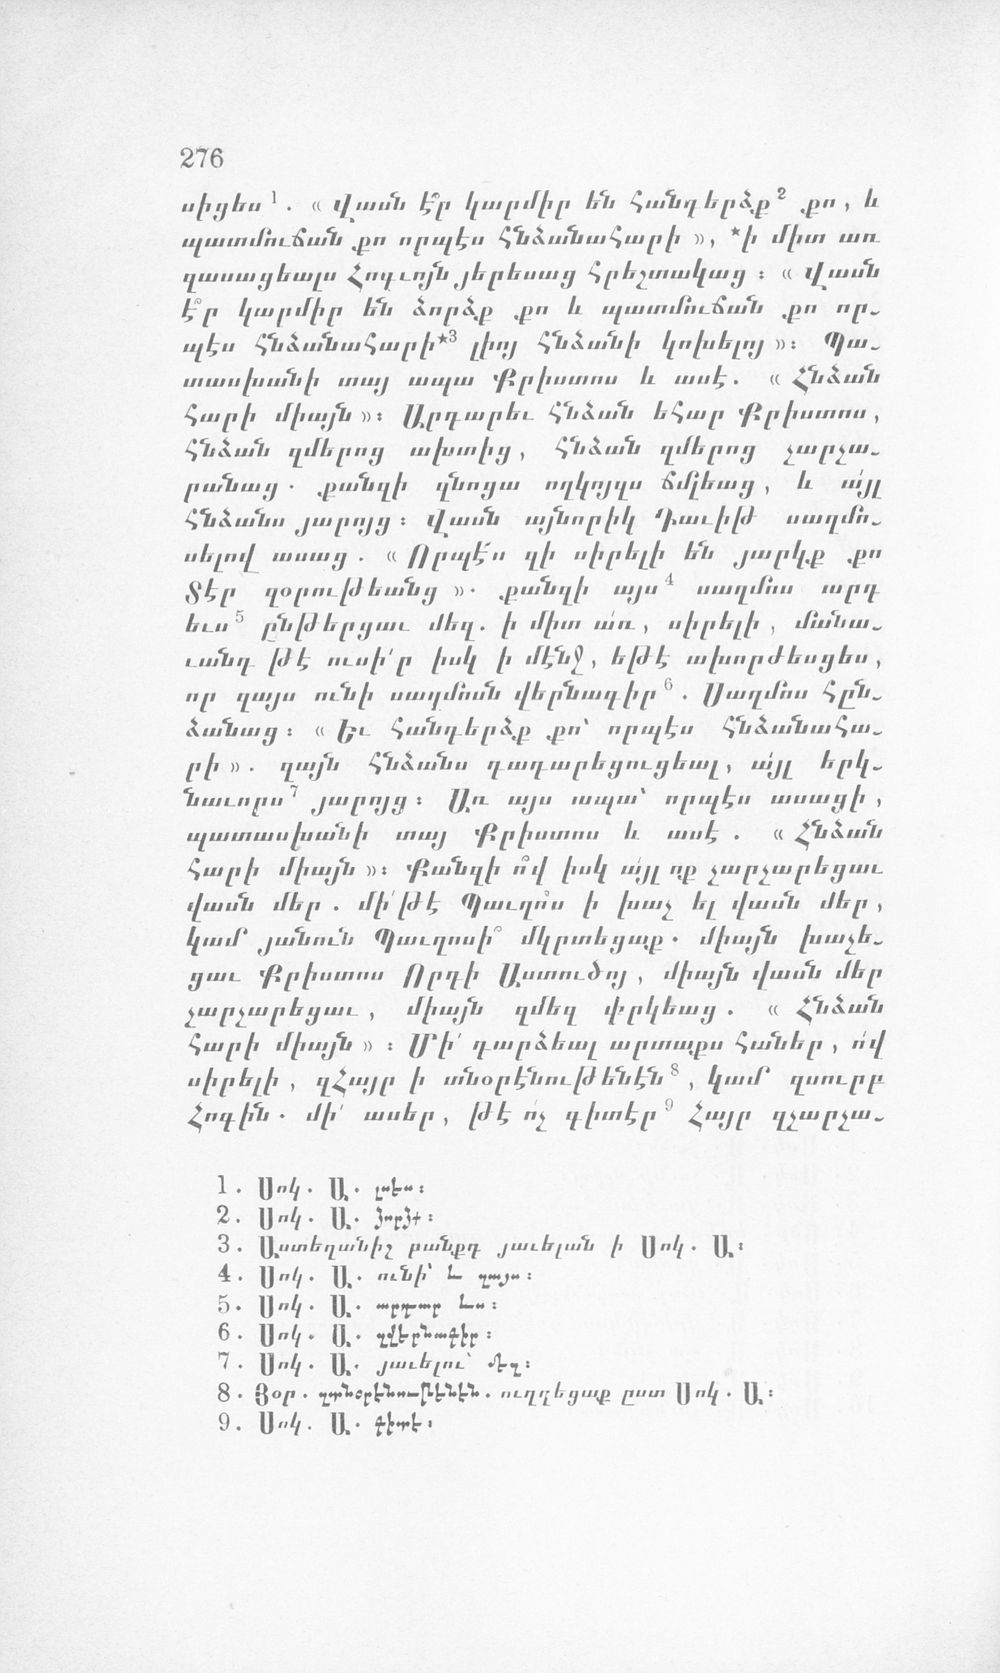 276
սիցես¹. « Վասն է՞ր կարմիր են հանդերձք² քո, և
պատմուճան քո որպէս հնձանահարի », *ի միտ առ
զասացեալս Հոգւոյն յերեսաց հրեշտակաց : « Վասն
է՞ր կարմիր են ձորձք քո և պատմուճան քո որ֊
պէս հնձանահարի*³ լիոյ հնձանի կոխելոյ »: Պա֊
տասխանի տայ ապա Քրիստոս և ասէ. « Հնձան
հարի միայն »: Արդարեւ հնձան եհար Քրիստոս,
հնձան զմերոց ախտից, հնձան զմերոց չարչա֊
րանաց. քանզի զնոցա ողկոյզս ճմլեաց, և այլ
հնձանս յարոյց : Վասն այնորիկ Դաւիթ սաղմո֊
սելով ասաց. « Որպէ՜ս զի սիրելի են յարկք քո
Տէր զօրութեանց ». քանզի այս⁴ սաղմոս արդ
եւս⁵ ընթերցաւ մեզ. ի միտ առ, սիրելի, մանա֊
ւանդ թէ ուսի՛ր իսկ ի մէնջ, եթէ ախորժեսցես,
որ զայս ունի սաղմոսն վերնագիր⁶. Սաղմոս հըն֊
ձանաց : « Եւ հանդերձք քո՝ որպէս հնձանահա֊
րի ». զայն հնձանս դադարեցուցեալ, այլ երկ֊
նաւորս⁷ յարոյց : Առ այս ապա՝ որպէս ասացի,
պատասխանի տայ Քրիստոս և ասէ. « Հնձան
հարի միայն »: Քանզի ո՞վ իսկ այլ ոք չարչարեցաւ
վասն մեր. մի՛ թէ Պաւղո՞ս ի խաչ ել վասն մեր,
կամ յանուն Պաւղոսի՞ մկրտեցաք. միայն խաչե֊
ցաւ Քրիստոս Որդի Աստուծոյ, միայն վասն մեր
չարչարեցաւ, միայն զմեզ փրկեաց. « Հնձան
հարի միայն » : Մի՛ դարձեալ արտաքս հաներ, ո՛վ
սիրելի, զՀայր ի տնօրէնութենէն⁸, կամ զսուրբ
Հոգին. մի՛ ասեր, թէ ո՛չ գիտէր⁹ Հայր զչարչա֊
1. Սոկ. Ա. լսես :
2. Սոկ. Ա. ձորձք :
3. Աստեղանիշ բանքդ յաւելան ի Սոկ. Ա:
4. Սոկ. Ա. ունի՝ և զայս :
5. Սոկ. Ա. արդար ևս :
6. Սոկ. Ա. զվերնագիր :
7. Սոկ. Ա. յաւելու՝ մեզ :
8. Յօր. զտնօրէնութենէն. ուղղեցաք ըստ Սոկ. Ա:
9. Սոկ. Ա. գիտէ :